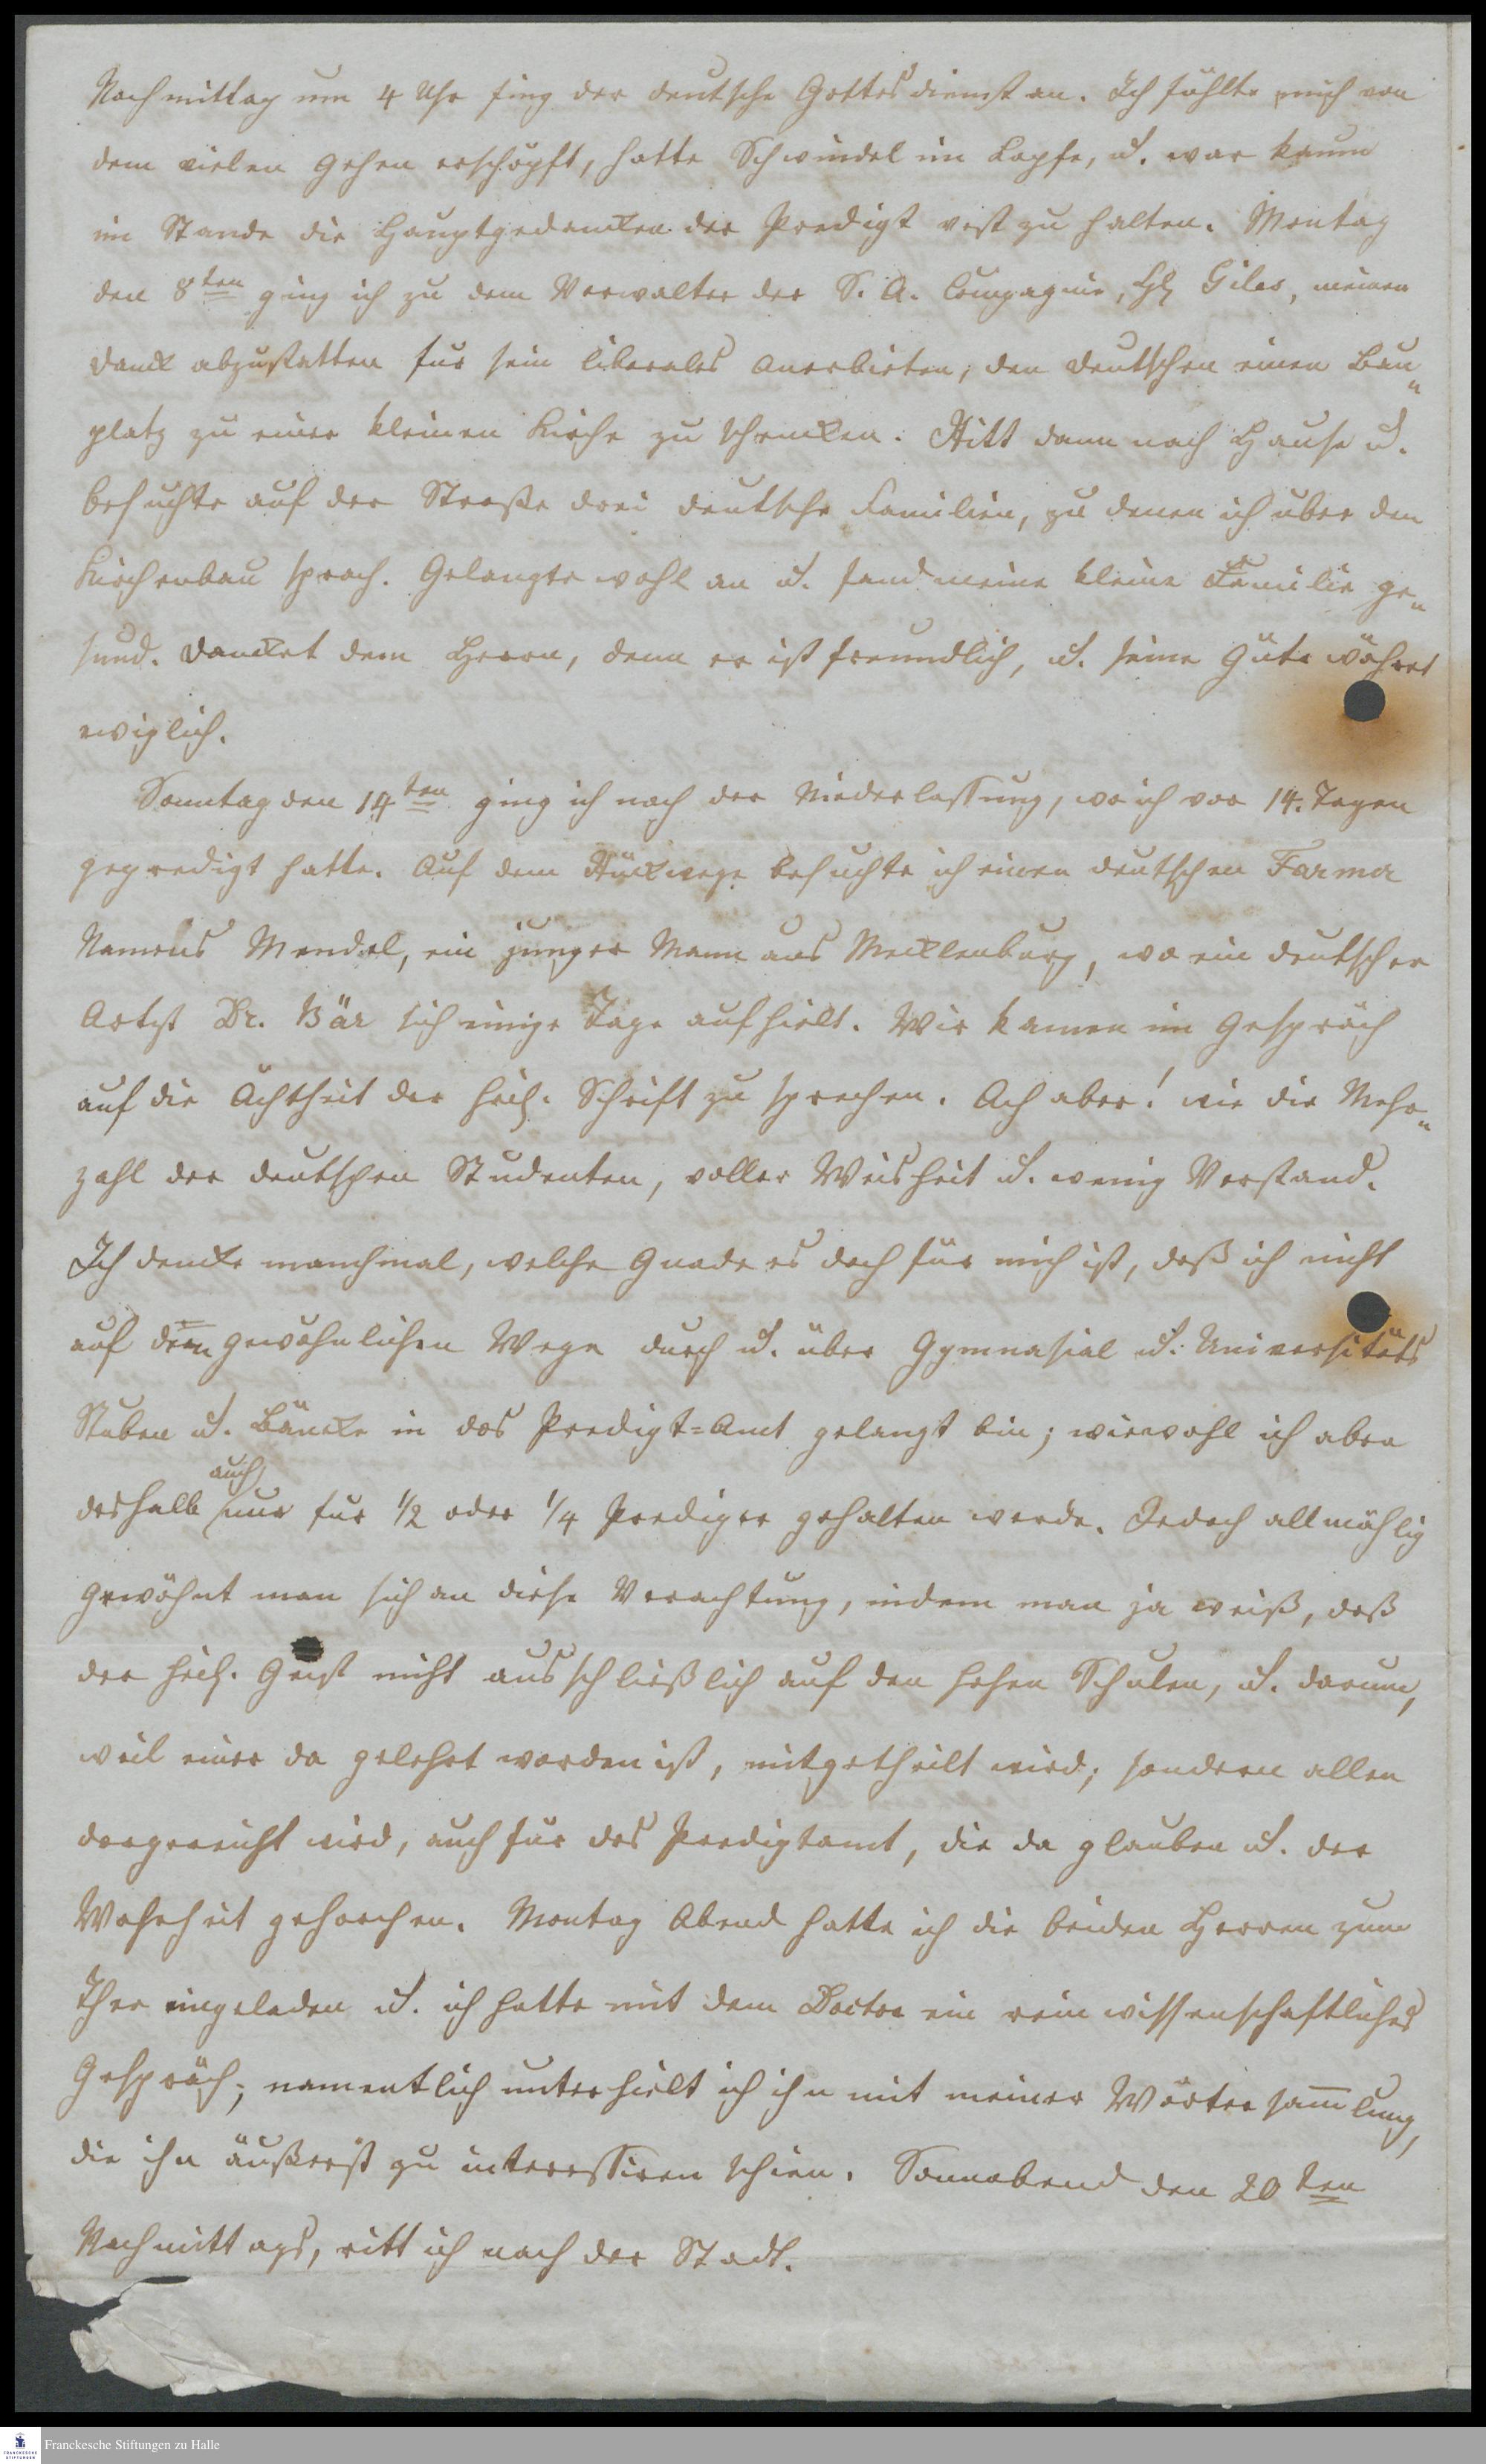 Nachmittag um 4 Uhr fing der deutsche Gottesdienst an. Ich fühlte mich von
dem vielen Gehen erschöpft, hatte Schwindel im Kopfe, u. war kaum
im Stande die Hauptgedancken der Predigt vest zu halten. Montag
den 8ten ging ich zu dem Verwalter der S. A. Compagnie, H. Giles, meinen
Danck abzustatten fur sein liberales Anerbieten, den Deutschen einen Bau„
platz zu einer kleinen Kirche zu schencken. Ritt dann nach Hause u.
besuchte auf der Straße drei deutsche Familien, zu denen ich uber den
Kirchenbau sprach. Gelangte wohl an u. fand meine kleine Familie ge„
sund. Dancket dem Herrn, denn er ist freundlich, u. seine Güte währet
ewiglich.
Sonntag den 14ten ging ich nach der Niederlassung, wo ich vor 14. Tagen
gepredigt hatte. Auf dem Rückwege besuchte ich einen deutschen Farmer
Namens Mendel, ein junger Mann aus Mecklenburg, wo ein deutscher
Artzt Dr. Bär sich einige Tage aufhielt. Wir kamen im Gespräch
auf die Ächtheit der heil. Schrift zu sprechen. Ach aber! wie die Mehr„
zahl der deutschen Studenten, voller Weisheit u. wenig Verstand.
Ich dencke manchmal, welche Gnade es doch für mich ist, daß ich nicht
auf dem gewöhnlichen Wege durch u. über Gymnasial u. Universitäts
Stuben u. Bäncke in das Predigt=Amt gelangt bin; wiewohl ich aber
deshalb auch nur fur 1/2 oder 1/4 Prediger gehalten werde. Jedoch allmählig
gewöhnt man sich an diese Verachtung, indem man ja weiß, daß
der heil. Geist nicht ausschließlich auf den hohen Schulen, u. darum,
weil einer da gelehrt worden ist, mitgetheilt wird; sondern allen
dargereicht wird, auch fur das Predigtamt, die da glauben u. der
Wahrheit gehorchen. Montag Abend hatte ich die beiden Herren zum
Thee eingeladen u. ich hatte mit dem Doctor ein rein wissenschaftliches
Gespräch; namentlich unterhielt ich ihn mit meiner Wörtersam̅lung,
die ihn äußerst zu interessiren schien. Sonnabend den 20ten
Nachmittags, ritt ich nach der Stadt.
Franckesche Stiftungen zu Halle